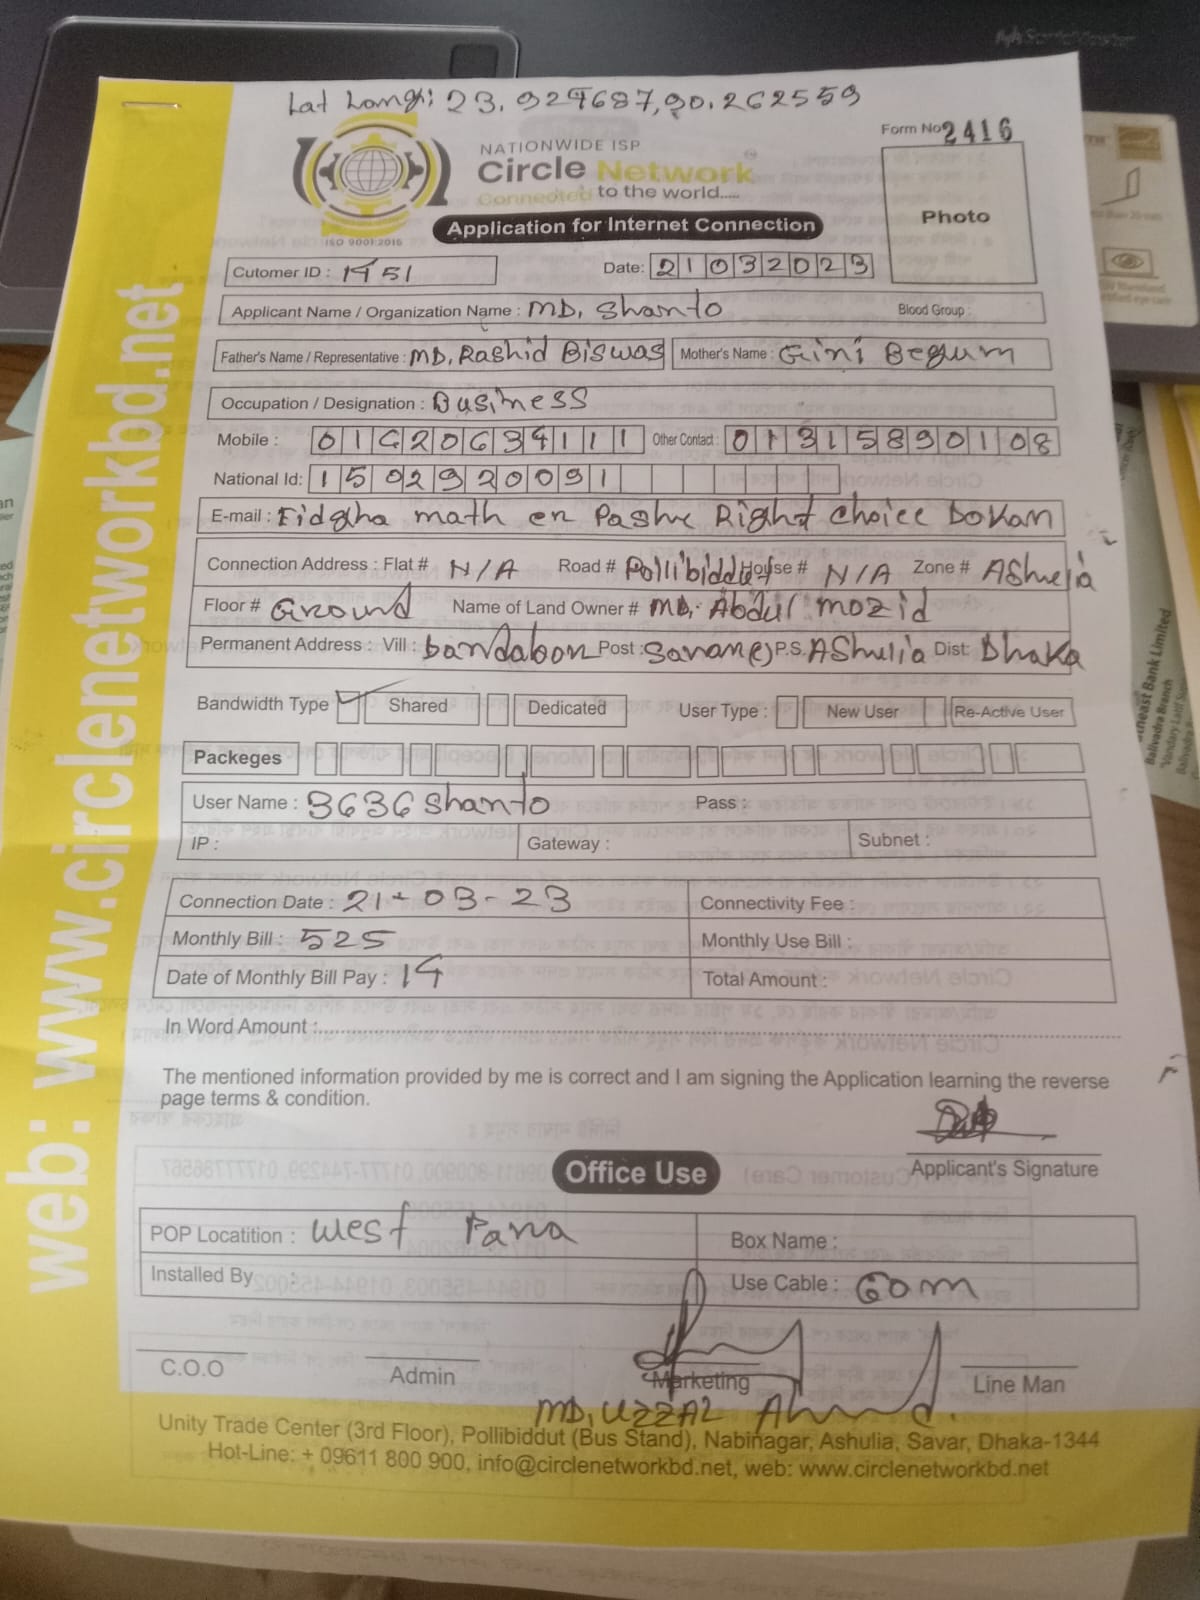 Lat Long: 23.924687,90.262559
Form No 2416
NATIONWIDE ISP
Circle Network
Connected to the world.....
ISO 9001:2015
Application for Internet Connection
Photo
Cutomer ID : 1451
Date: 21032023
Applicant Name / Organization Name : MD. Shanto Blood Group :
Father's Name / Representative : MD. Rashid Biswas Mother's Name : Gini Begum
Occupation / Designation : Business
Mobile : 01620634111 Other Contact : 01315890108
National Id: 1592920091
E-mail : Eidgha math er Pashe Right choice Dokan
Connection Address : Flat # N/A Road # Pollibiddut House # N/A Zone # Ashulia
Floor # Ground Name of Land Owner # MD. Abdul mozid
Permanent Address : Vill : bandabon Post : Savar P.S. AShulia Dist: Dhaka
Bandwidth Type Shared Dedicated User Type : New User Re-Active User
Packeges
User Name : 3636shanto Pass :
IP : Gateway : Subnet :
Connection Date : 21-03-23 Connectivity Fee :
Monthly Bill : 525 Monthly Use Bill :
Date of Monthly Bill Pay : 14 Total Amount :
In Word Amount :
The mentioned information provided by me is correct and I am signing the Application learning the reverse
page terms & condition.
Applicant's Signature
Office Use
POP Locatition : West Para Box Name :
Installed By : Use Cable : 60m
C.O.O Admin Marketing Line Man
MD. UZZAL Ahmed.
Unity Trade Center (3rd Floor), Pollibiddut (Bus Stand), Nabinagar, Ashulia, Savar, Dhaka-1344
Hot-Line: + 09611 800 900, info@circlenetworkbd.net, web: www.circlenetworkbd.net
web: www.circlenetworkbd.net
theast Bank Limited
Balivadra Branch